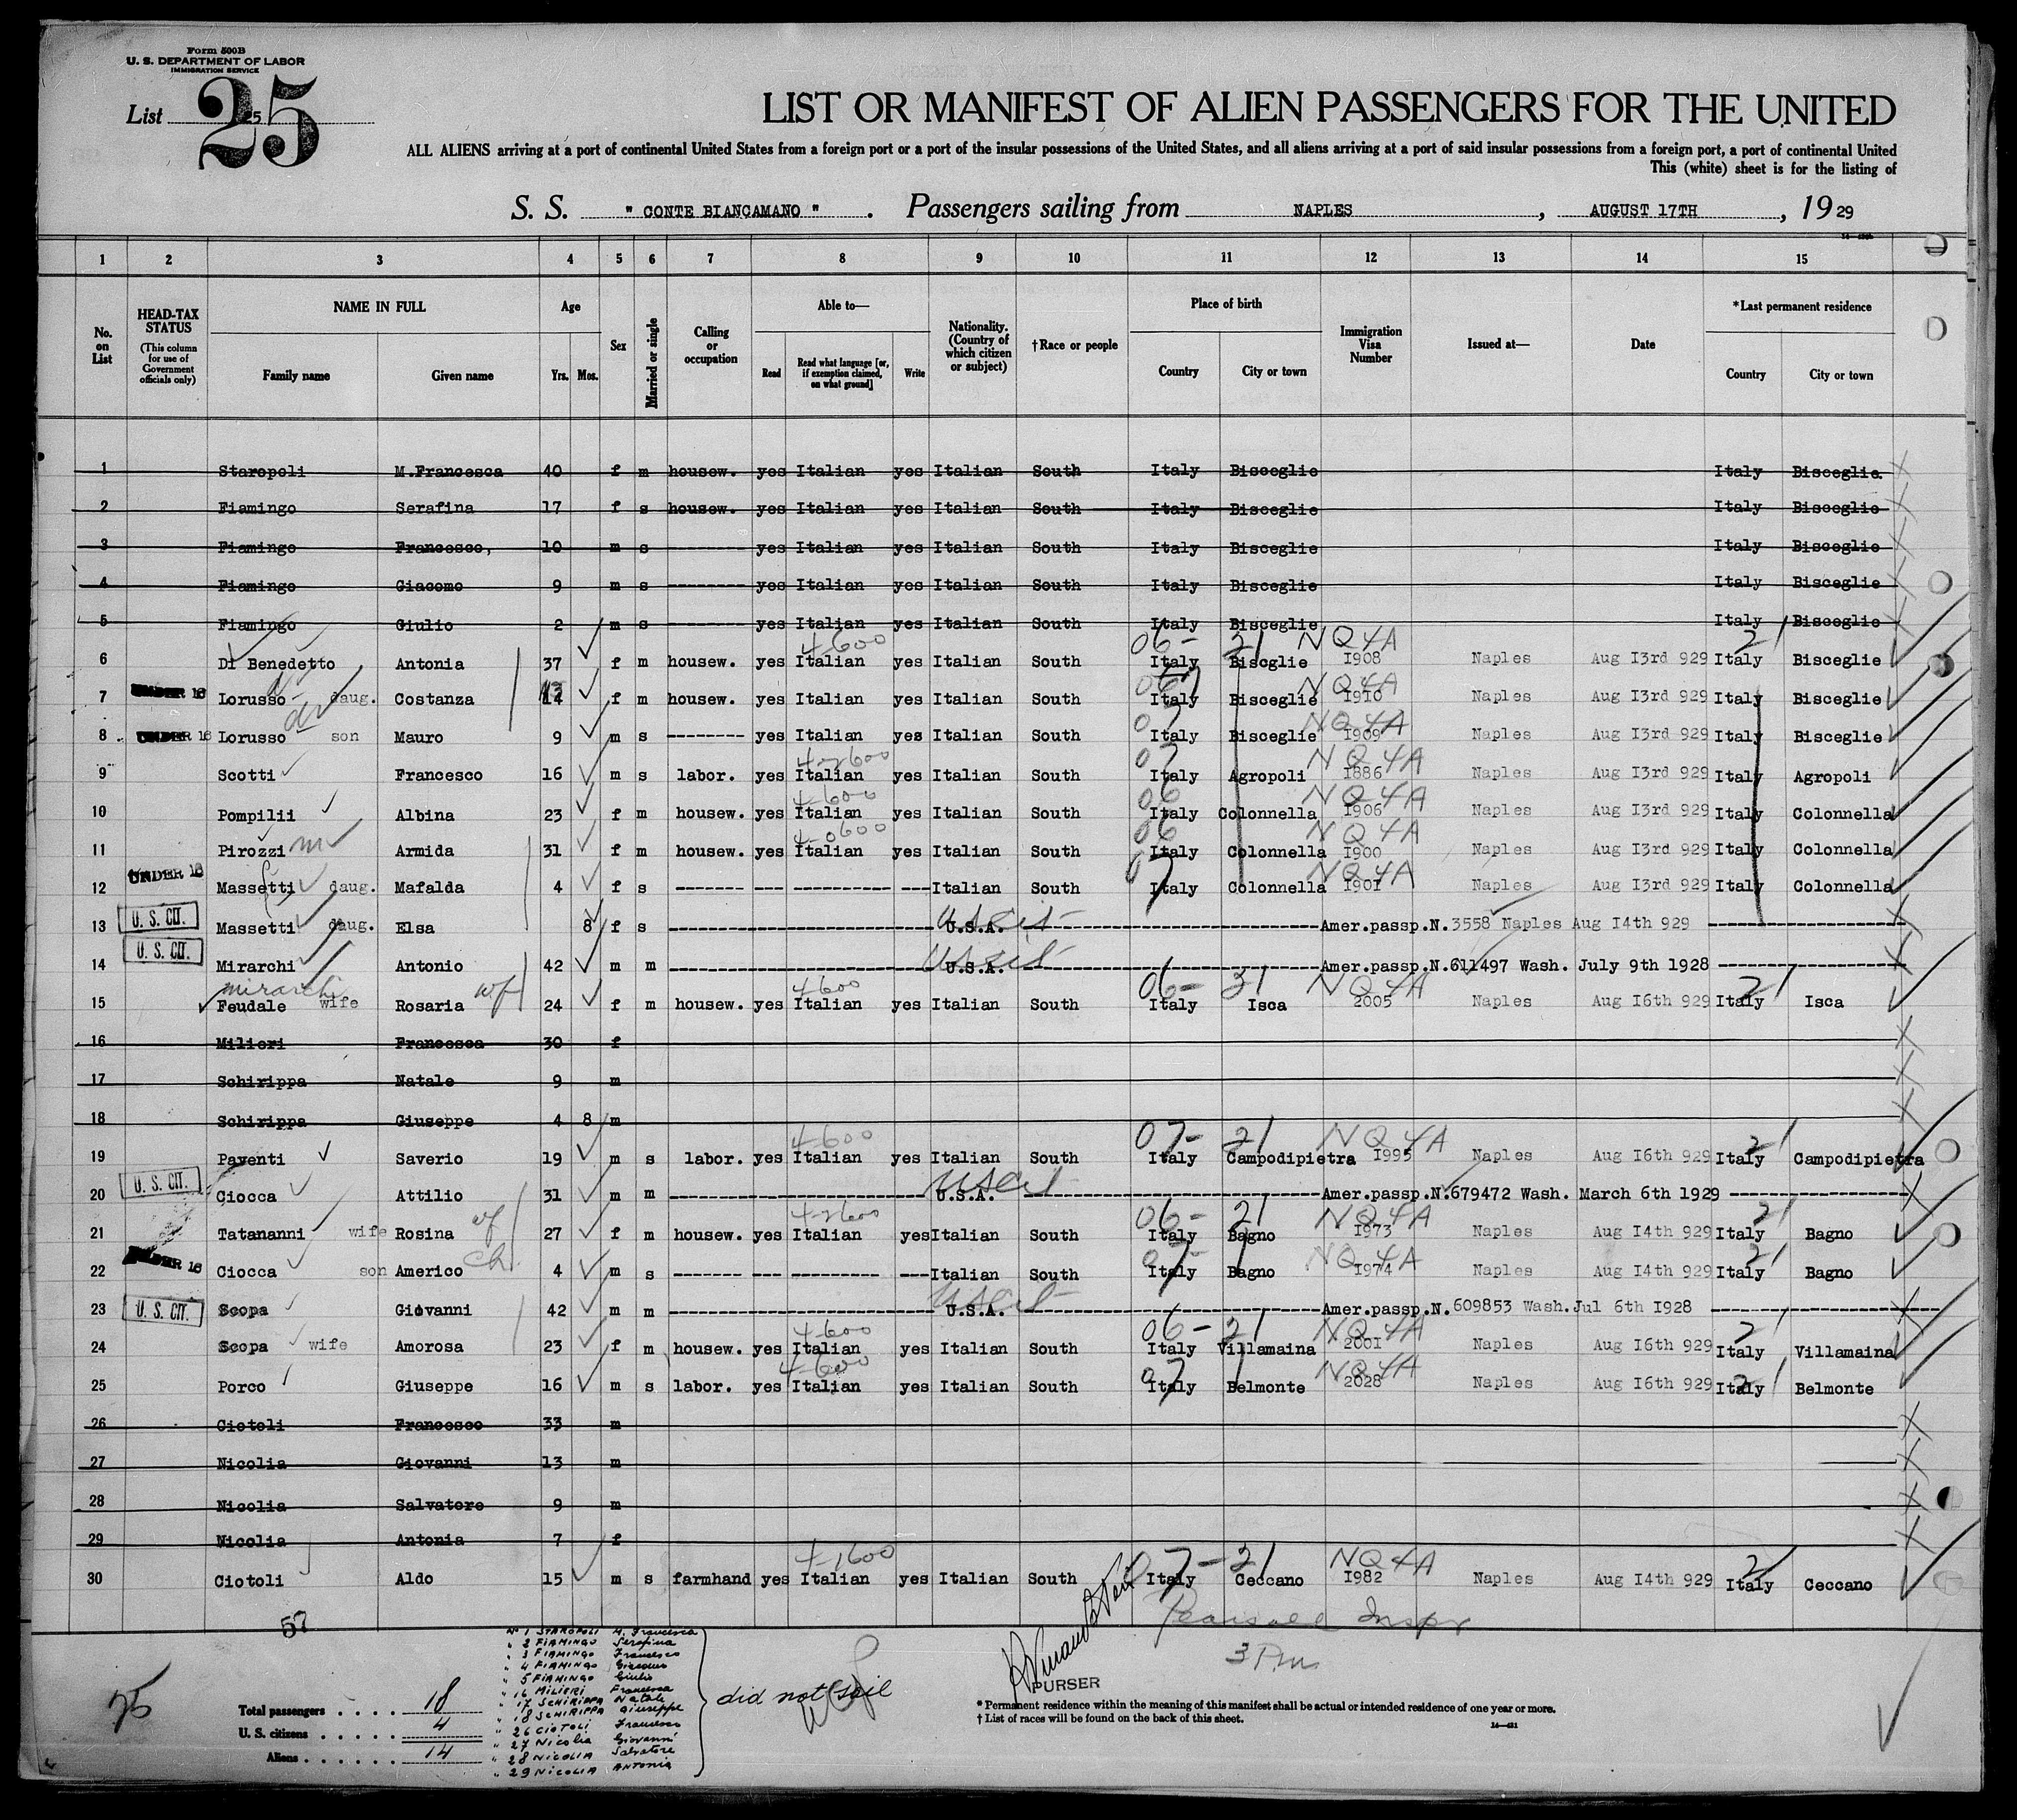 Form 500B
U. S. DEPARTMENT OF LABOR
IMMIGRATION SERVICE
List 25
25
LIST OR MANIFEST OF ALIEN PASSENGERS FOR THE UNITED
ALL ALIENS arriving at a port of continental United States from a foreign port or a port of the insular possessions of the United States, and all aliens arriving at a port of said insular possessions from a foreign port, a port of continental United
This (white) sheet is for the listing of
S. S. " CONTE BIANCAMANO " . Passengers sailing from NAPLES , AUGUST 17TH , 19 29
1 2 3 4 5 6 7 8 9 10 11 12 13 14 15
No. on List
HEAD-TAX STATUS
(This column for use of Government officials only)
NAME IN FULL
Family name
Given name
Age
Yrs. Mos.
Sex
Married or single
Calling or occupation
Able to—
Read
Read what language [or, if exemption claimed, on what ground]
Write
Nationality. (Country of which citizen or subject)
†Race or people
Place of birth
Country
City or town
Immigration Visa Number
Issued at—
Date
*Last permanent residence
Country
City or town
1 Staropoli M.Francesca 40 f m housew. yes Italian yes Italian South Italy Bisceglie Italy Bisceglie X
2 Fiamingo Serafina 17 f s housew. yes Italian yes Italian South Italy Bisceglie Italy Bisceglie X
3 Fiamingo Francesco, 10 m s -------- yes Italian yes Italian South Italy Bisceglie Italy Bisceglie X
4 Fiamingo Giacomo 9 m s -------- yes Italian yes Italian South Italy Bisceglie Italy Bisceglie X
5 Fiamingo Giulio 2 m s -------- yes Italian yes Italian South Italy Bisceglie Italy Bisceglie X
4-600 06- 21 NQ4A 21
6 Di Benedetto Antonia 37 f m housew. yes Italian yes Italian South Italy Bisceglie I908 Naples Aug I3rd 929 Italy Bisceglie
NQ4A
7 UNDER 16 Lorusso daug. Costanza 14 f m housew. yes Italian yes Italian South Italy Bisceglie I910 Naples Aug I3rd 929 Italy Bisceglie
07 NQ4A
8 UNDER 16 Lorusso son Mauro 9 m s -------- yes Italian yes Italian South Italy Bisceglie I909 Naples Aug I3rd 929 Italy Bisceglie
4-2600 07 NQ4A
9 Scotti Francesco 16 m s labor. yes Italian yes Italian South Italy Agropoli I886 Naples Aug I3rd 929 Italy Agropoli
4-600 06 NQ4A
10 Pompilii Albina 23 f m housew. yes Italian yes Italian South Italy Colonnella I906 Naples Aug I3rd 929 Italy Colonnella
4-0600 06 NQ4A
11 Pirozzi m Armida 31 f m housew. yes Italian yes Italian South Italy Colonnella I900 Naples Aug I3rd 929 Italy Colonnella
07 NQ4A
12 UNDER 16 Massetti daug. Mafalda 4 f s ------- --- ---------- --- Italian South Italy Colonnella I901 Naples Aug I3rd 929 Italy Colonnella
US cit
13 U. S. CIT. Massetti daug. Elsa 8 f s U.S.A. Amer.passp.N.3558 Naples Aug I4th 929 X
US cit
14 U. S. CIT. Mirarchi Antonio 42 m m U.S.A. Amer.passp.N.611497 Wash. July 9th 1928 X
Mirarchi wf 4-600 06- 21 NQ4A 21
15 Feudale wife Rosaria 24 f m housew. yes Italian yes Italian South Italy Isca 2005 Naples Aug I6th 929 Italy Isca
16 Milieri Francesca 30 f X
17 Schirippa Natale 9 m X
18 Schirippa Giuseppe 4 8 m X
4-600 07- 21 NQ4A 21
19 Paventi Saverio 19 m s labor. yes Italian yes Italian South Italy Campodipietra I995 Naples Aug I6th 929 Italy Campodipietra
US cit
20 U. S. CIT. Ciocca Attilio 31 m m U.S.A. Amer.passp.N.679472 Wash. March 6th 1929 X
wf 4-2600 06- 21 NQ4A 21
21 Tatananni wife Rosina 27 f m housew. yes Italian yes Italian South Italy Bagno I973 Naples Aug I4th 929 Italy Bagno
ch. 07- NQ4A 21
22 UNDER 16 Ciocca son Americo 4 m s ------- --- --------- --- Italian South Italy Bagno I974 Naples Aug I4th 929 Italy Bagno
US cit
23 U. S. CIT. Scopa Giovanni 42 m m U.S.A. Amer.passp.N.609853 Wash.Jul 6th I928
4-600 06- 21 NQ4A 21
24 Scopa wife Amorosa 23 f m housew. yes Italian yes Italian South Italy Villamaina 2001 Naples Aug I6th 929 Italy Villamaina
4-600 07 NQ4A 21
25 Porco Giuseppe 16 m s labor. yes Italian yes Italian South Italy Belmonte 2028 Naples Aug I6th 929 Italy Belmonte
26 Ciotoli Francesco 33 m X
27 Nicolia Giovanni 13 m X
28 Nicolia Salvatore 9 m X
29 Nicolia Antonia 7 f X
4-1600 07-21 NQ4A 21
30 Ciotoli Aldo 15 m s farmhand yes Italian yes Italian South Italy Ceccano I982 Naples Aug I4th 929 Italy Ceccano
57
Inspr
3 Pm
PURSER
No 1 STAROPOLI M. Francesca
" 2 FIAMINGO Serafina
" 3 FIAMINGO Francesco
" 4 FIAMINGO Giacomo
" 5 FIAMINGO Giulio
" 16 MILIERI Francesca
" 17 SCHIRIPPA Natale
" 18 SCHIRIPPA Giuseppe
" 26 CIOTOLI Francesco
" 27 Nicolia Giovanni
" 28 NICOLIA Salvatore
" 29 NICOLIA ANTONIA
did not sail
25
Total passengers . . . . 18
U. S. citizens . . . . . 4
Aliens . . . . . . 14
* Permanent residence within the meaning of this manifest shall be actual or intended residence of one year or more.
† List of races will be found on the back of this sheet.
14—421